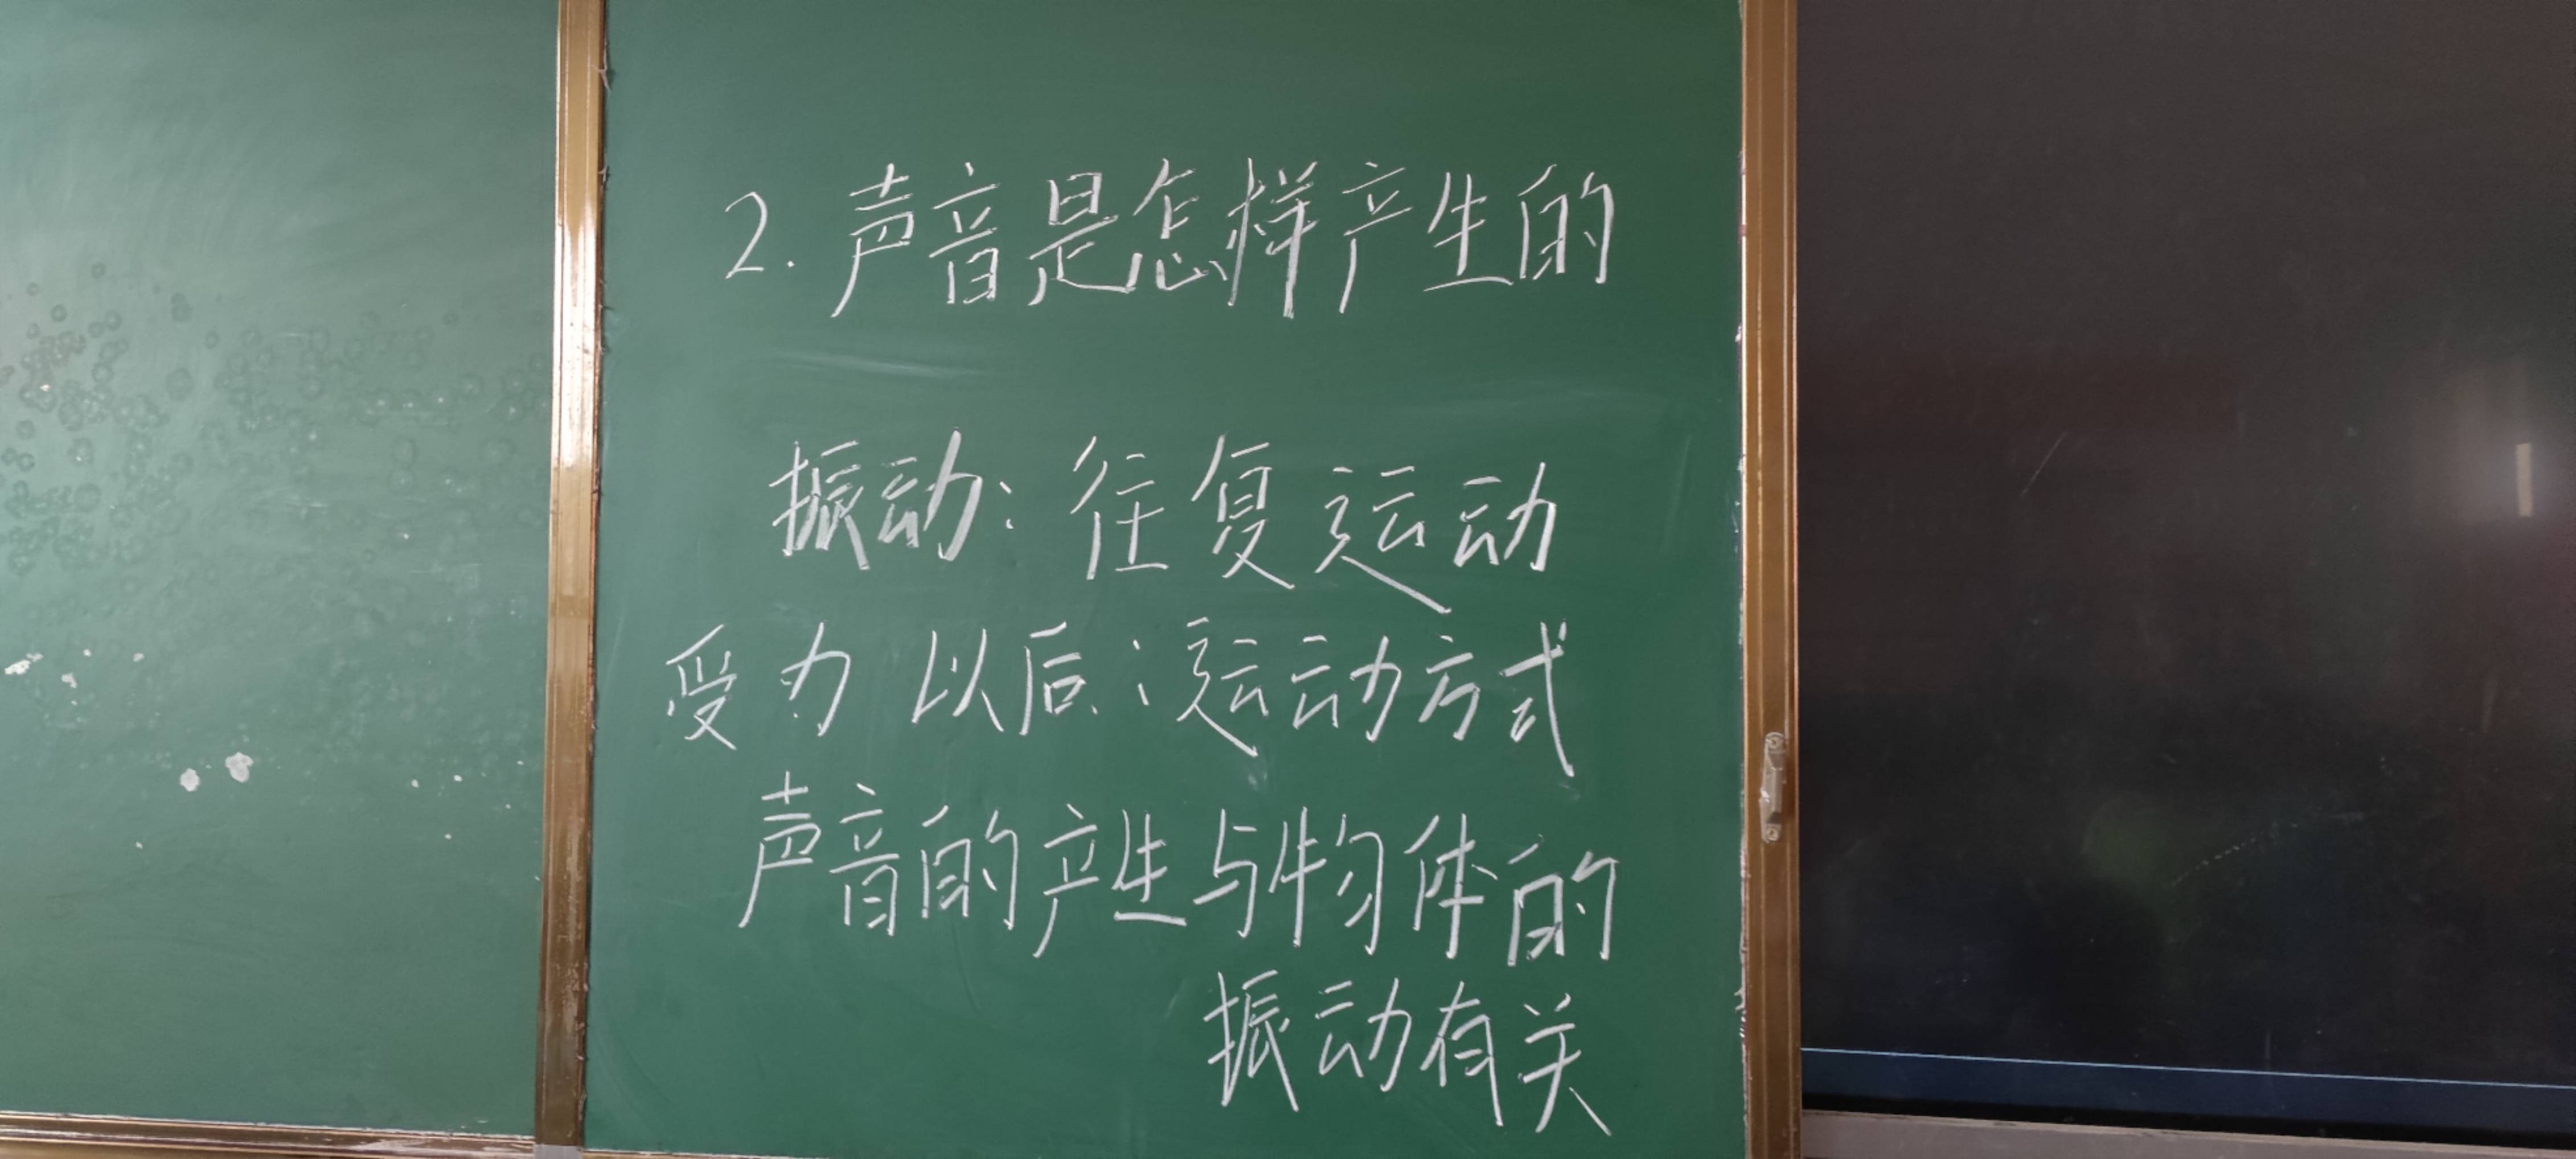 2. 声音是怎样产生的
振动：往复运动
受力以后：运动方式
声音的产生与物体的
振动有关